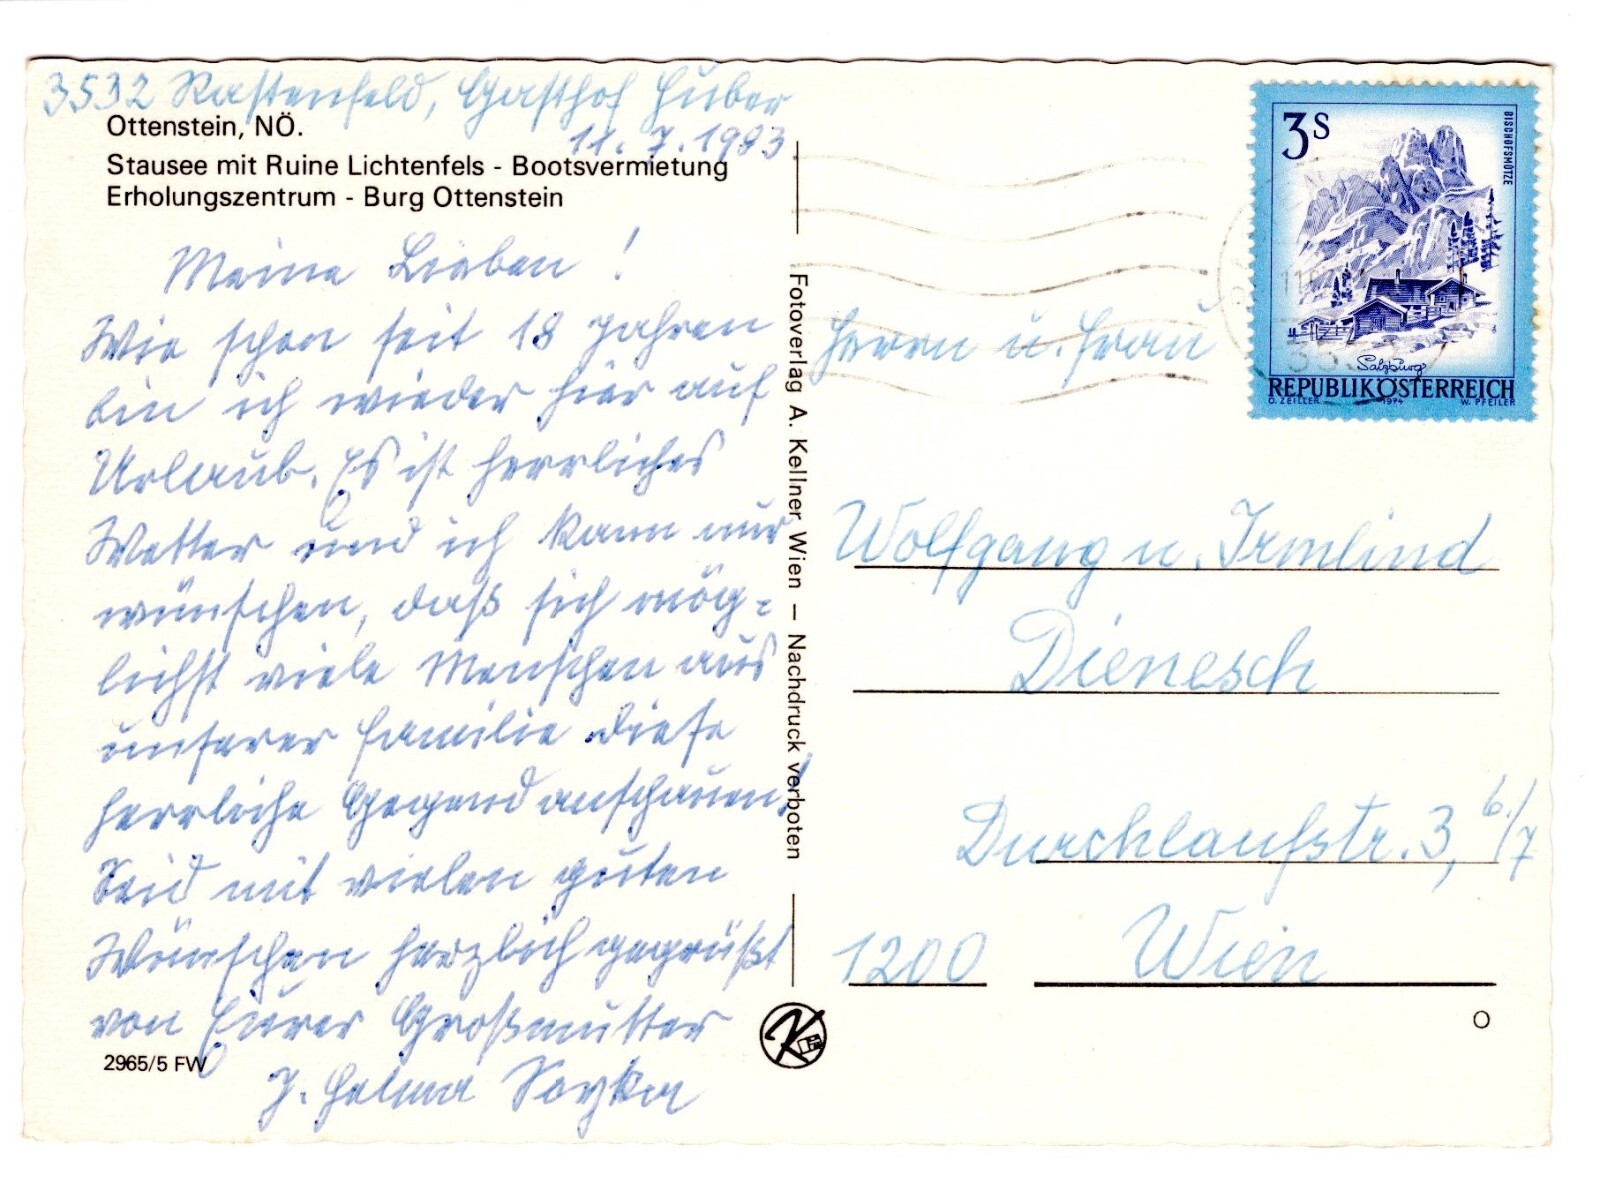 3532 Rastenfeld, Gasthof Huber
11. 7. 1983
Ottenstein, NÖ.
Stausee mit Ruine Lichtenfels - Bootsvermietung
Erholungszentrum - Burg Ottenstein
Meine Lieben !
Wie schon seit 18 Jahren
bin ich wieder hier auf
Urlaub. Es ist herrliches
Wetter und ich kann nur
wünschen, daß sich mög=
lichst viele Menschen aus
unserer Familie diese
herrliche Gegend anschauen!
Seid mit vielen guten
Wünschen herzlich gegrüßt
von Eurer Großmutter
J. Helma
2965/5 FW
Fotoverlag A. Kellner Wien – Nachdruck verboten
K
3 S
BISCHOFSMÜTZE
Salzburg
REPUBLIK ÖSTERREICH
O. ZEILLER 1974 W. PFEILER
Herrn u. Frau
Wolfgang u. Irmlind
Dienesch
Durchlaufstr. 3, 6/7
1200 Wien